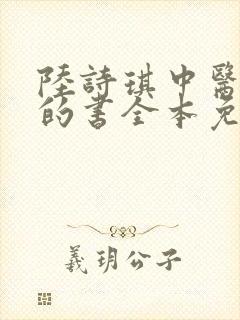 陸詩琪中醫
的書全本免
羲玥公子